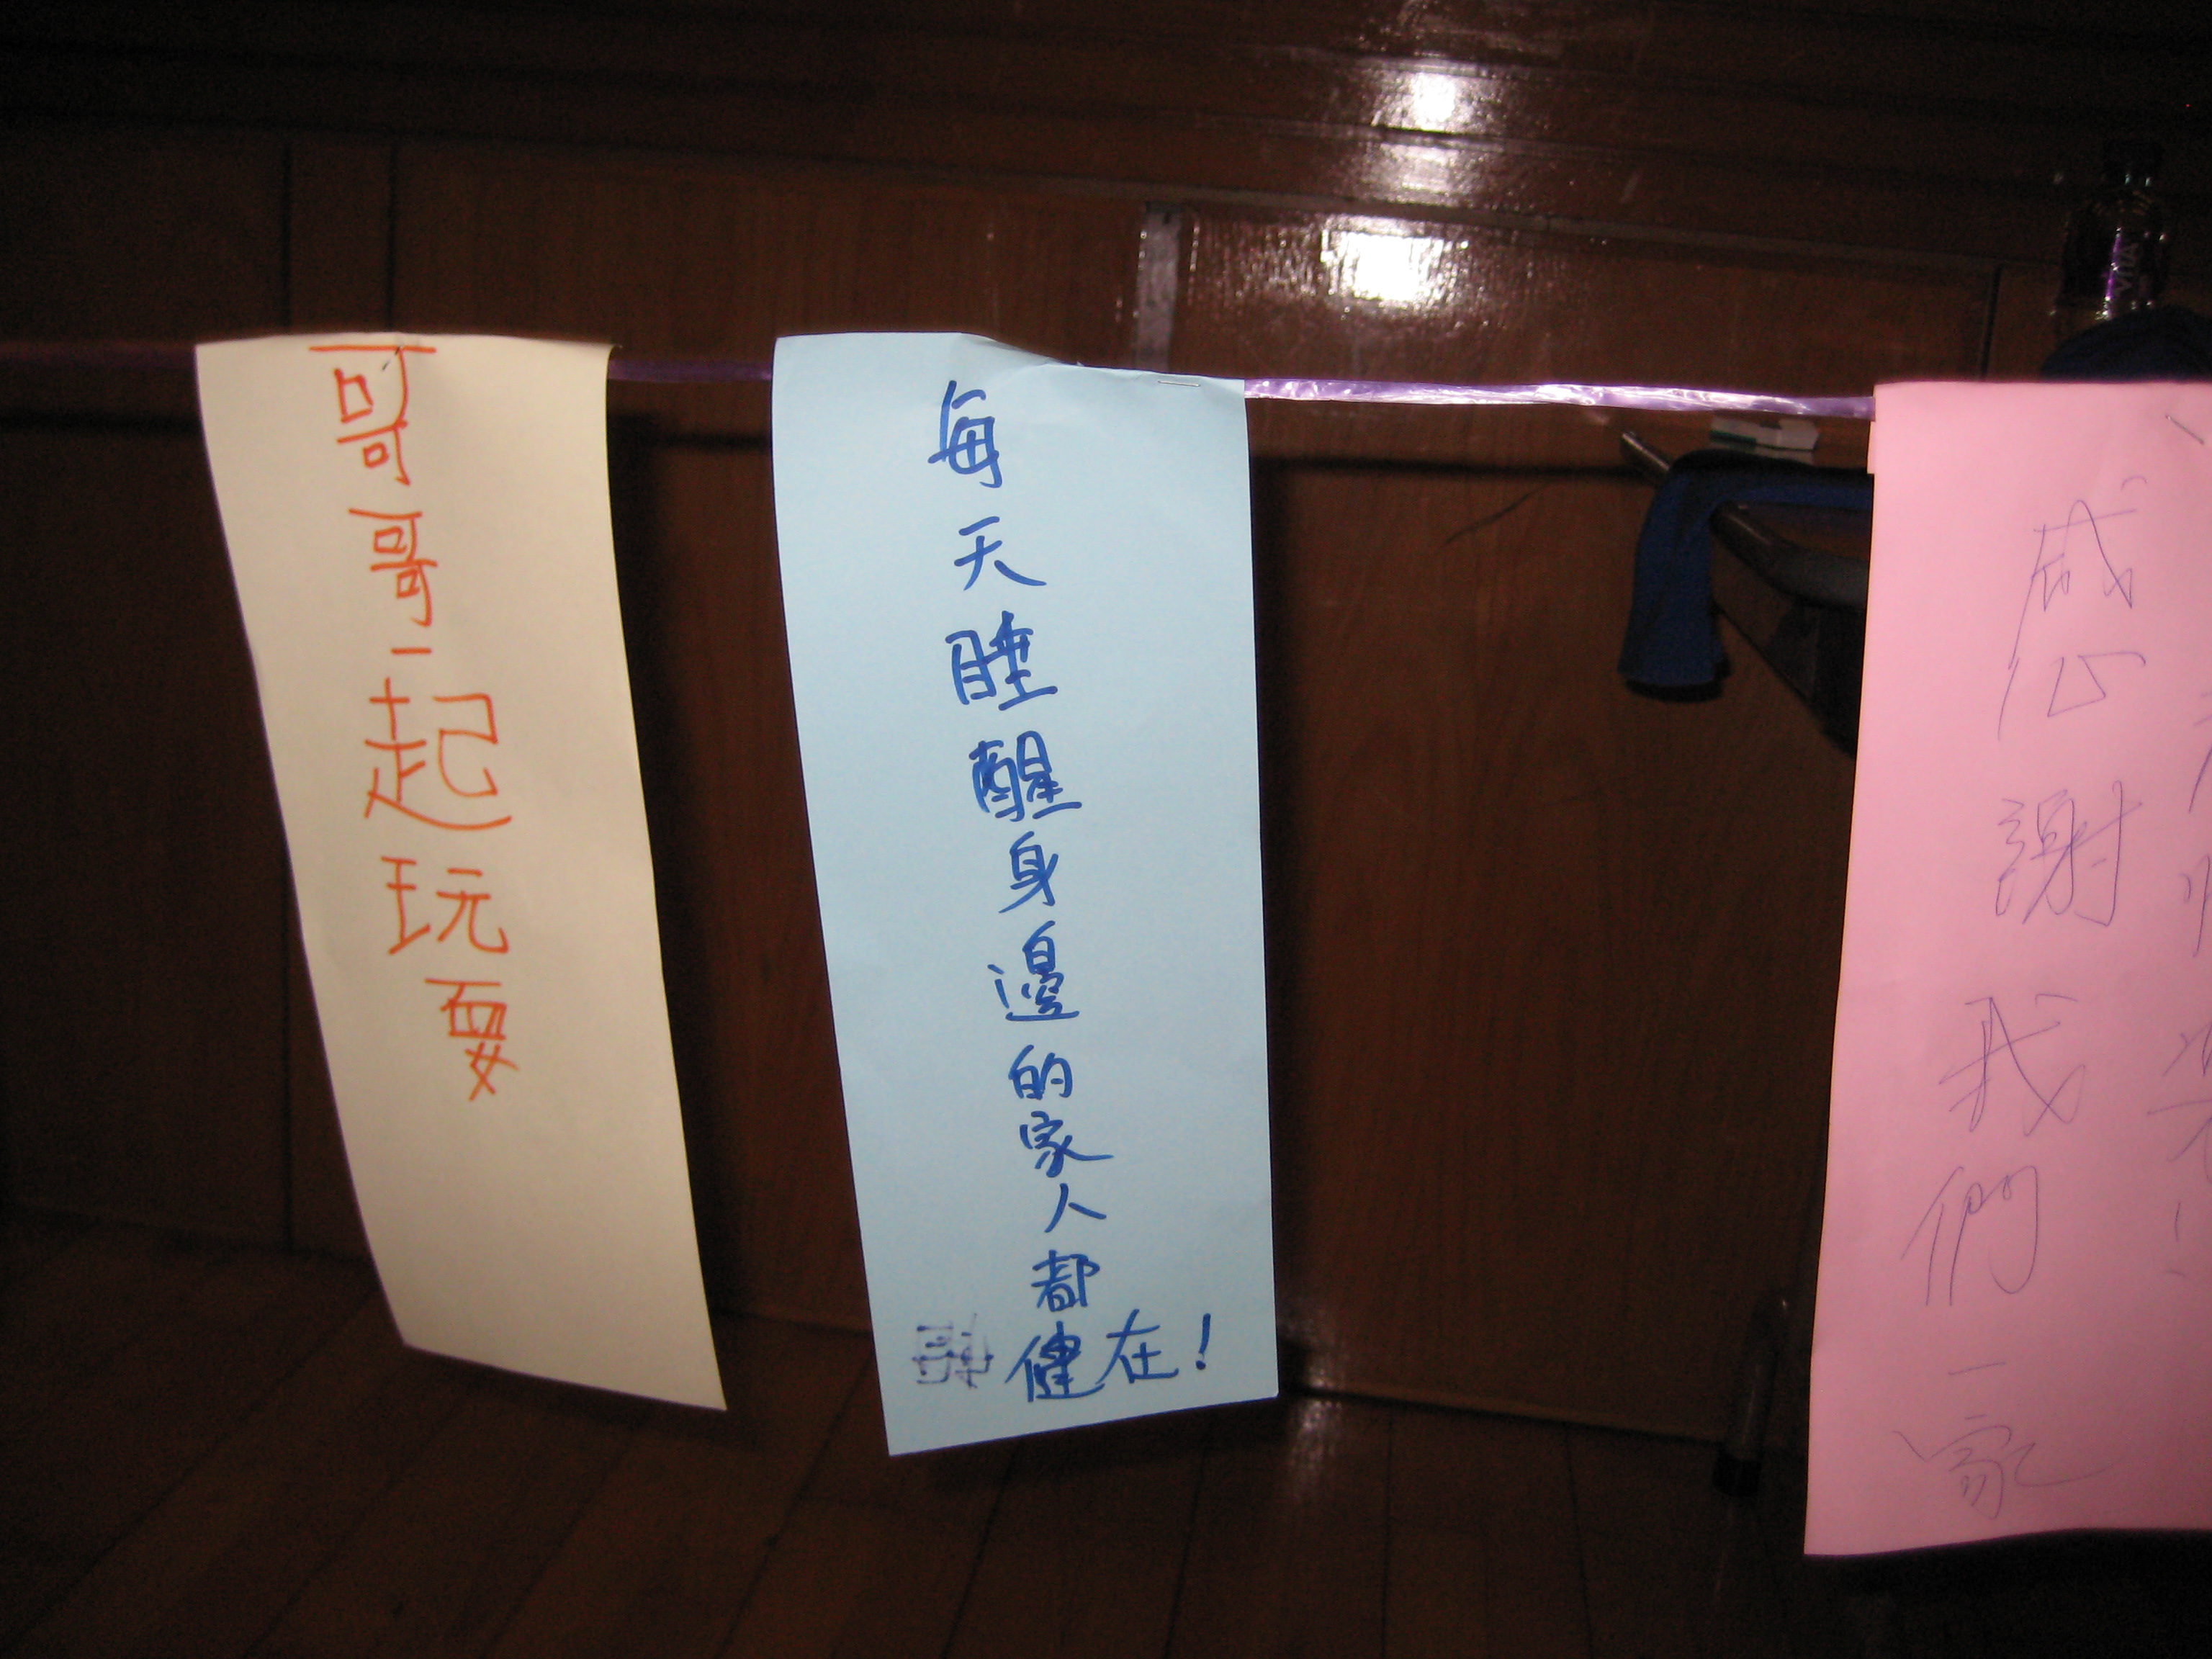 哥哥一起玩耍
每天睡醒身邊的家人都健在！
感謝我們一家